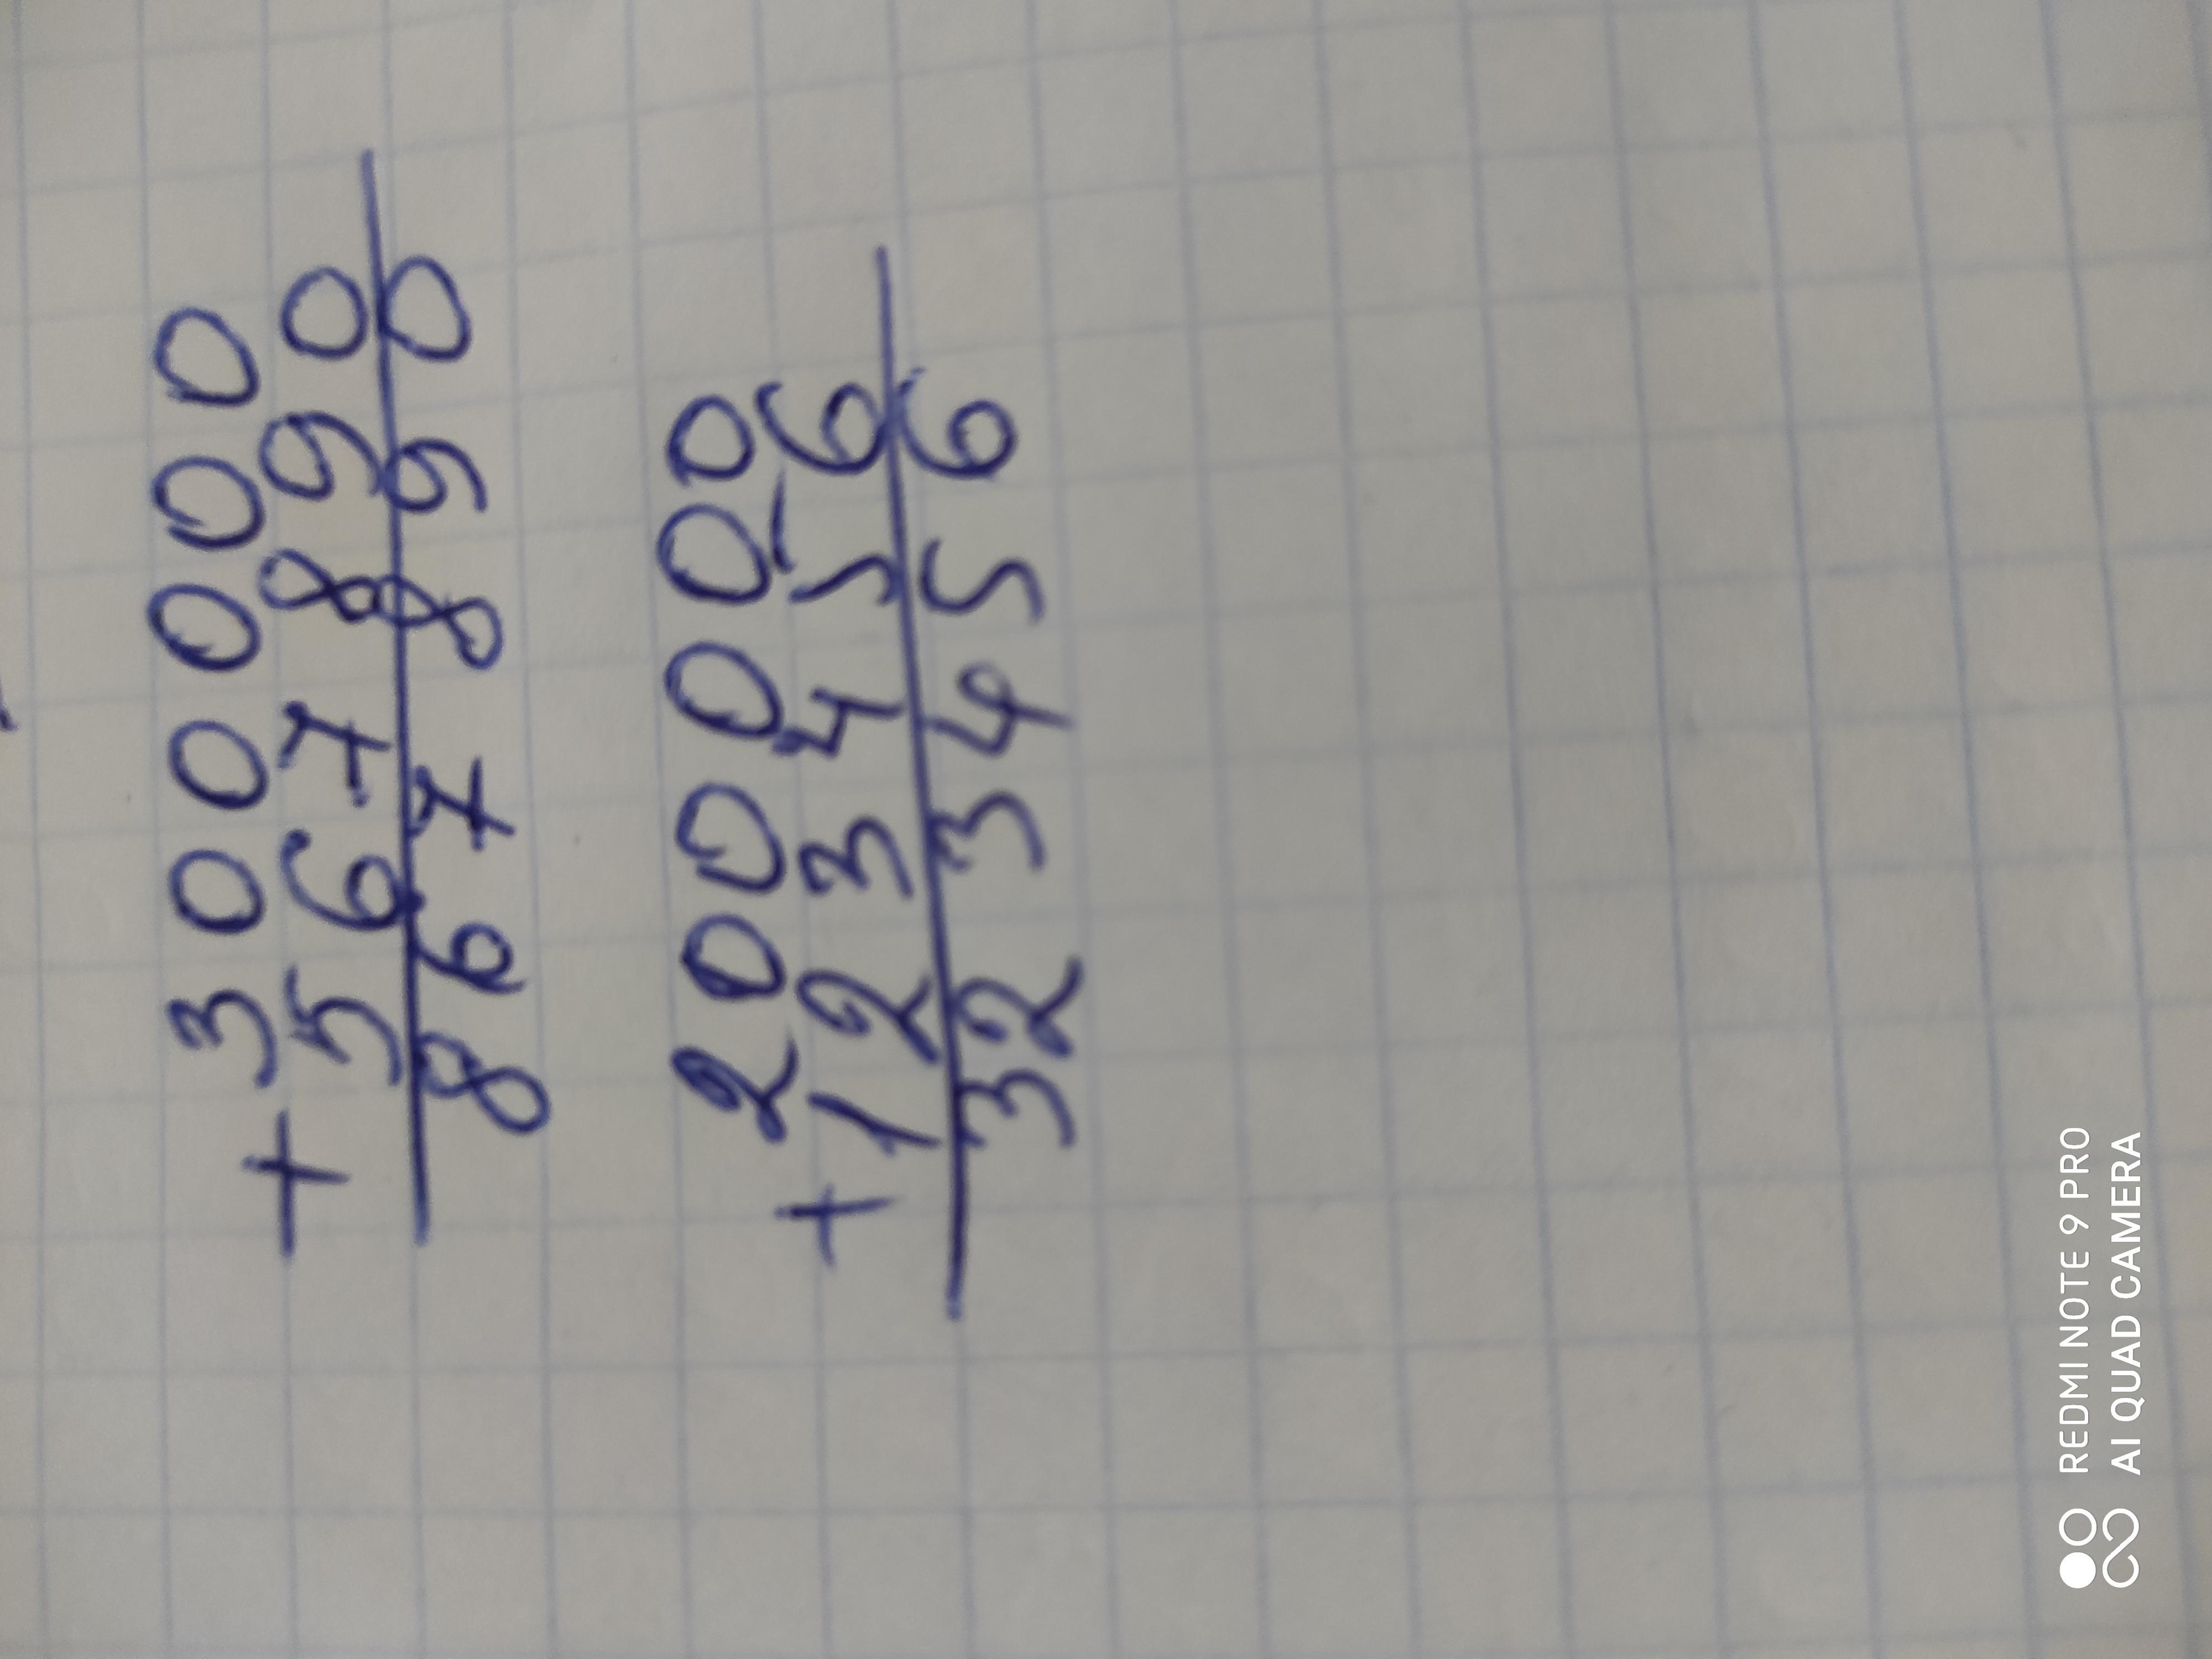 300000
+ 567890
867890
200000
+ 123456
323456
REDMI NOTE 9 PRO
AI QUAD CAMERA